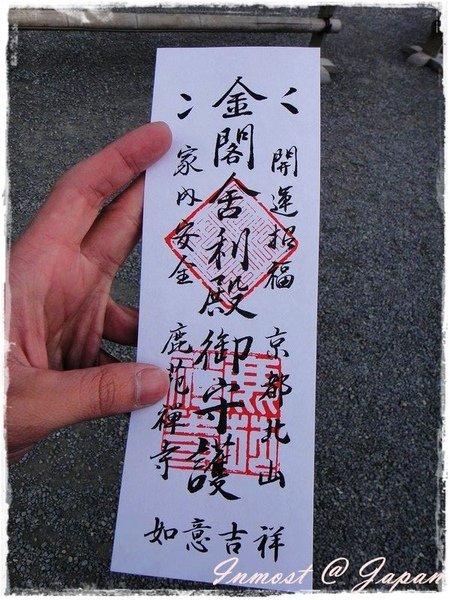 開運招福
京都北山
金閣舎利殿御守護
家内安全
鹿苑禅寺
如意吉祥
Inmost @ Japan